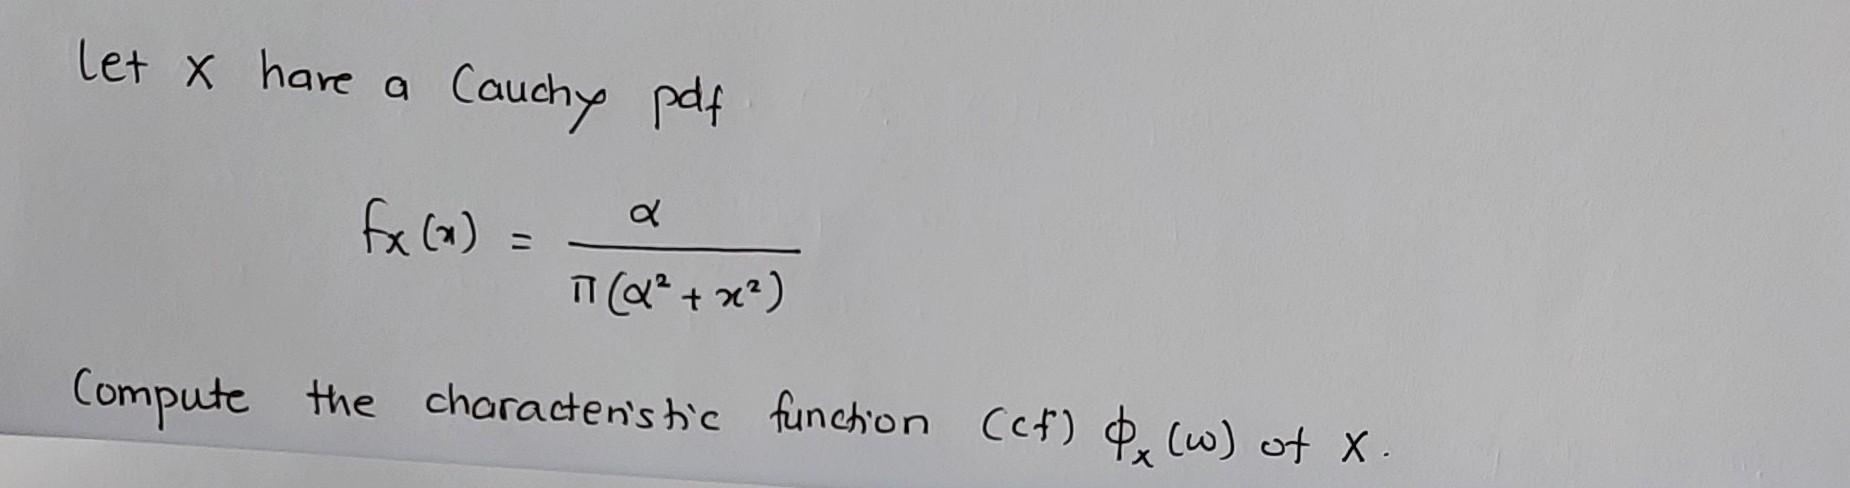 Let X have a Cauchy pdf
fx(x) = α / π(α² + x²)
Compute the characteristic function (cf) ϕx(ω) of X.